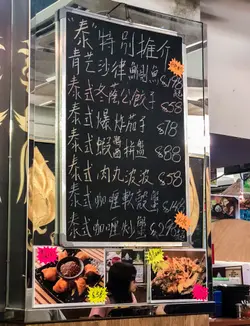 "泰"特別推介
青芒沙律 $148
泰式冬蔭公餃子 $58
泰式爆炸茄子 $78
泰式蝦醬拼盤 $88
泰式肉丸波波 $58
泰式咖喱軟殼蟹 $148
泰式咖喱炒蟹